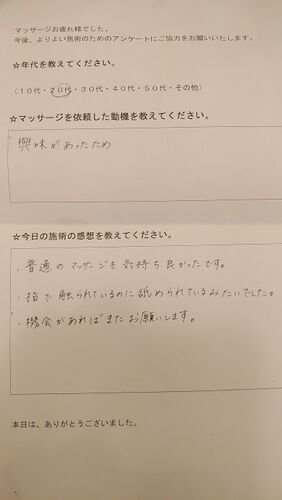 マッサージお疲れ様でした。
今後、よりよい施術のためのアンケートにご協力をお願いいたします。
☆年代を教えてください。
(10代・20代・30代・40代・50代・その他)
☆マッサージを依頼した動機を教えてください。
興味があったため
☆今日の施術の感想を教えてください。
・普通のマッサージも気持ち良かったです。
・指で触られているのに舐められているみたいでした。
・機会があればまたお願いします。
本日は、ありがとうございました。